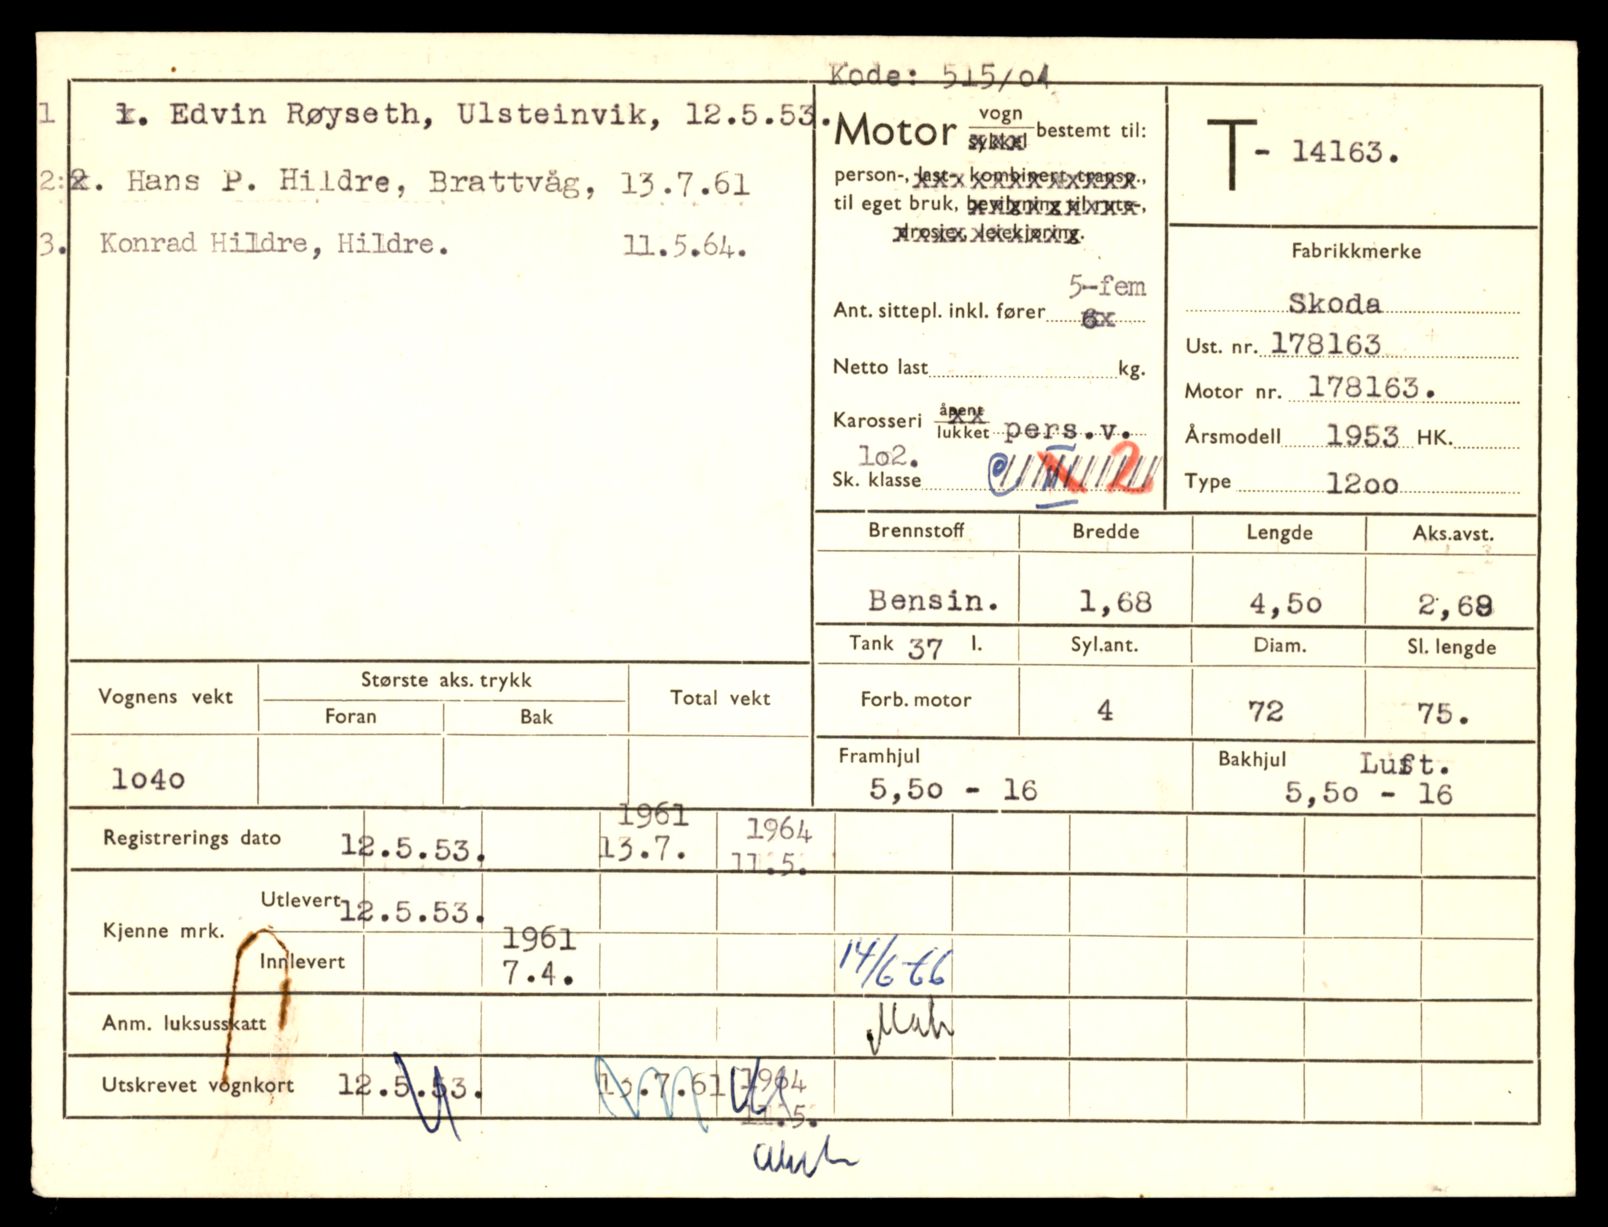 Kode: 515/o4
1 1. Edvin Røyseth, Ulsteinvik, 12.5.53.
2: 2. Hans P. Hildre, Brattvåg, 13.7.61
3. Konrad Hildre, Hildre. 11.5.64.
Motor vogn sykkel bestemt til:
person-, last-, kombinert, transp.,
til eget bruk, bevilgning til rute-,
drosje, leiekjøring.
5-fem
Ant. sittepl. inkl. fører 6
Netto last kg.
Karosseri åpent lukket pers.v.
1o2.
Sk. klasse 2
T- 14163.
Fabrikkmerke
Skoda
Ust. nr. 178163
Motor nr. 178163.
Årsmodell 1953 HK.
Type 12oo
Brennstoff Bredde Lengde Aks.avst.
Bensin. 1,68 4,5o 2,68
Tank 37 l. Syl.ant. Diam. Sl. lengde
Forb. motor 4 72 75.
Framhjul Bakhjul Luft.
5,5o - 16 5,5o - 16
Vognens vekt Største aks. trykk Total vekt
Foran Bak
1o4o
Registrerings dato 12.5.53. 1961 13.7. 1964 11.5.
Kjenne mrk. Utlevert 12.5.53.
Innlevert 1961 7.4. 14/6-66
Anm. luksusskatt
Utskrevet vognkort 12.5.53. 13.7.61 1964 11.5.